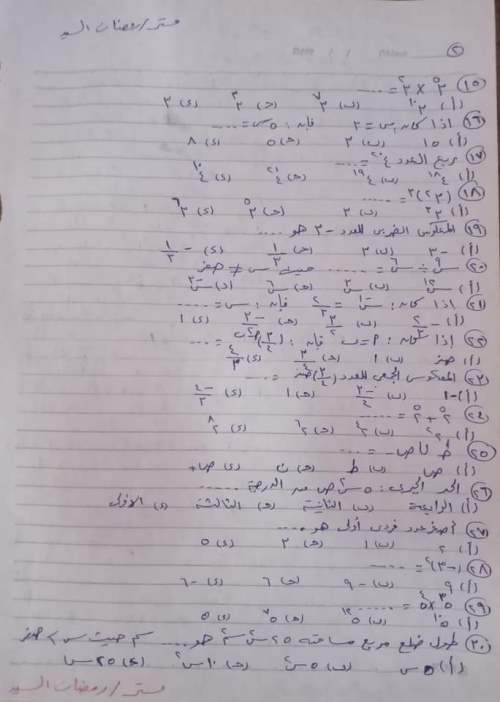 مستر/رمضان السيد
(٥)
(١٥) ٣^٥ × ٣^٢ = ....
(أ) ٣^١٠ (ب) ٣^٧ (ج) ٣^٣ (د) ٣
(١٦) اذا كان س = ٣ فإن : ٥س = ....
(أ) ١٥ (ب) ٣ (ج) ٥ (د) ٨
(١٧) مربع العدد ٤^٢٠ = ....
(أ) ٤^١٨ (ب) ٤^١٩ (ج) ٤^٢١ (د) ٤^١٠
(١٨) (٣^٢)^٣ = ....
(أ) ٣^٢ (ب) ٣ (ج) ٣^٥ (د) ٣^٦
(١٩) المعكوس الضربى للعدد - ٣ هو ....
(أ) - ٣ (ب) ٣ (ج) ١/٣ (د) - ١/٣
(٢٠) س^٩ ÷ س^٦ = ...... حيث س ≠ صفر
(أ) س^١٥ (ب) س^٣ (ج) س^٦ (د) س^-٣
(٢١) اذا كان : س^-١ = ٢/٣ فإن : س = .....
(أ) - ٢/٣ (ب) ٣/٢ (ج) - ٣/٢ (د) ١
(٢٢) إذا كان : ٢ = ب فإن : (٣/٤)^٢-ب = ....
(أ) صفر (ب) ١ (ج) ٣/٤ (د) ٤/٣
(٢٣) المعكوس الجمعى للعدد (٣/٤)^صفر = ....
(أ) - ١ (ب) - ٣/٤ (ج) ١ (د) - ٤/٣
(٢٤) ٢^٥ + ٢^٥ = ......
(أ) ٢^٢ (ب) ٢^٤ (ج) ٢^٦ (د) ٢^٨
(٢٥) ط ∩ ص- = ....
(أ) ص (ب) ط (ج) ن (د) ص+
(٢٦) الحد الجبرى : ٥ س^٢ ص من الدرجة ......
(أ) الرابعة (ب) الثانية (ج) الثالثة (د) الأولى
(٢٧) أصغر عدد فردى أولى هو ....
(أ) ٢ (ب) ١ (ج) ٣ (د) ٥
(٢٨) (-٣)^٢ = .....
(أ) ٩ (ب) - ٩ (ج) ٦ (د) - ٦
(٢٩) ٥^٣ × ٥^٤ = ......
(أ) ٥^١٠ (ب) ٥^١٢ (ج) ٥^٧ (د) ٥
(٣٠) طول ضلع مربع مساحته ٢٥ س^٢ سم^٢ هو .... سم حيث س > صفر
(أ) ٥ س (ب) ٥ س^٢ (ج) ١٠ س^٢ (د) ٢٥ س
مستر/رمضان السيد